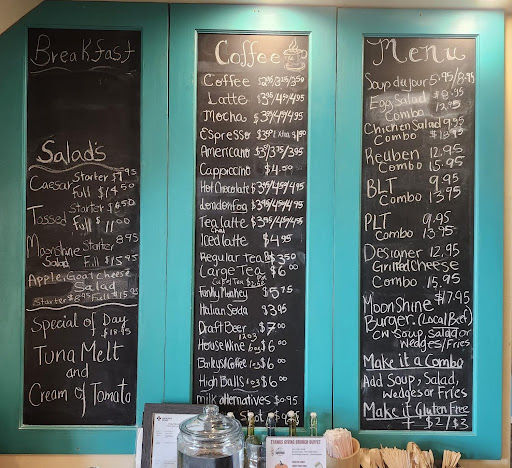 Breakfast
Salad's
Caesar Starter $7.95
Full $14.50
Tossed Starter $6.50
Full $11.00
Moonshine Starter 8.95
Salad Full $15.95
Apple, Goat cheese
Salad
Starter $8.95 Full $15.95
Special of Day
$18.95
Tuna Melt
and
Cream of Tomato
Coffee
Coffee $2.95/3.25/3.50
Latte $3.95/4.45/4.95
Mocha $3.95/4.45/4.95
Espresso
Americano
Cappuccino $4.50
Hot Chocolate $3.95/4.45/4.95
London fog $3.95/4.45/4.95
Tea Latte $3.95/4.45/4.95
Chai
Iced Latte $4.95
Regular Tea
Large Tea $6.00
Funky Monkey $5.75
Italian Soda $3.95
Draft Beer $7.00
House Wine $6.00
Baileys & Coffee 1oz $6.00
High Balls 1oz $6.00
milk alternatives $0.95
Menu
Soup du jour 5.95/8.95
Egg Salad $8.95
Combo 12.95
Chicken Salad 9.95
Combo
Reuben 12.95
Combo 15.95
BLT 9.95
Combo 13.95
PLT 9.95
Combo 13.95
Designer 12.95
Grilled Cheese
Combo 15.95
Moonshine $17.95
Burger. (Local Beef)
c/w Soup, Salad or
Wedges/Fries
Make it a Combo
Add Soup, Salad,
Wedges or Fries
Make it Gluten Free
+ $2/$3
THANKSGIVING BRUNCH BUFFET